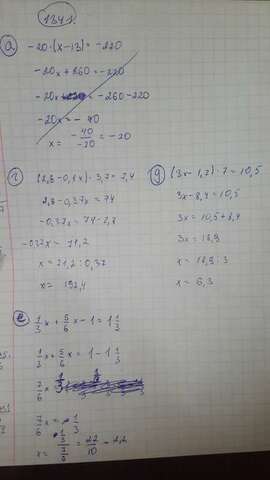 1341.
а) -20·(x-13) = -220
-20x + 260 = -220
-20x = -260-220
-20x = - 40
x = -40/-20 = -20
г) (2,8-0,1x)·3,7 = 7,4
2,8-0,37x = 74
-0,37x = 74-2,8
-0,37x = 71,2
x = 71,2 : 0,37
x = 192,4
д) (3x-1,2)·7 = 10,5
3x-8,4 = 10,5
3x = 10,5+8,4
3x = 18,9
x = 18,9 : 3
x = 6,3
е) 1/3 x + 5/6 x - 1 = 1 1/3
1/3 x + 5/6 x = 1-1 1/3
7/6 x =
7/6 x = - 1/3
= 22/10 = 2,2